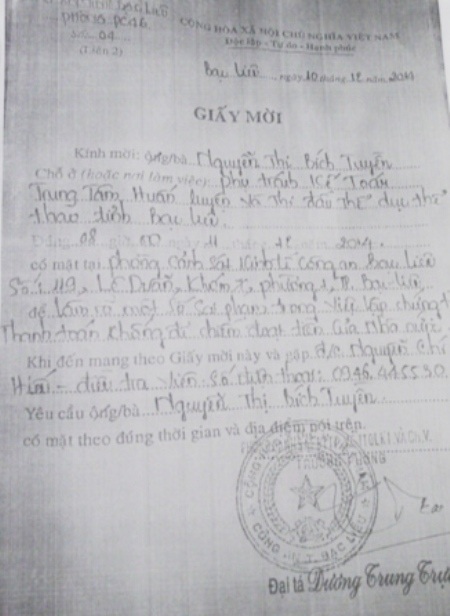 BẠC LIÊU
PHÒNG PC46
Số: 04
(Liên 2)
CỘNG HÒA XÃ HỘI CHỦ NGHĨA VIỆT NAM
Độc lập - Tự do - Hạnh phúc
Bạc Liêu, ngày 10 tháng 12 năm 2014
GIẤY MỜI
Kính mời: ông/bà Nguyễn Thị Bích Tuyền
Chỗ ở (hoặc nơi làm việc): phụ trách Kế Toán
Trung Tâm Huấn luyện và Thi đấu thể dục thể
thao tỉnh Bạc Liêu
Đúng 08 giờ 00 ngày 11 tháng 12 năm 2014
có mặt tại phòng Cảnh sát Kinh tế Công an Bạc Liêu
Số: 149, Lê Duẩn, Khóm 7, phường 1, TP. Bạc Liêu
để làm rõ một số sai phạm trong việc lập chứng từ
Thanh toán khống để chiếm đoạt tiền của Nhà nước
Khi đến mang theo Giấy mời này và gặp đ/c Nguyễn Chí
- điều tra viên Số điện thoại: 0946.445530.
Yêu cầu ông/bà Nguyễn Thị Bích Tuyền
có mặt theo đúng thời gian và địa điểm nói trên.
TRƯỞNG PHÒNG
CÔNG AN T. BẠC LIÊU
Đại tá Dương Trung Trực